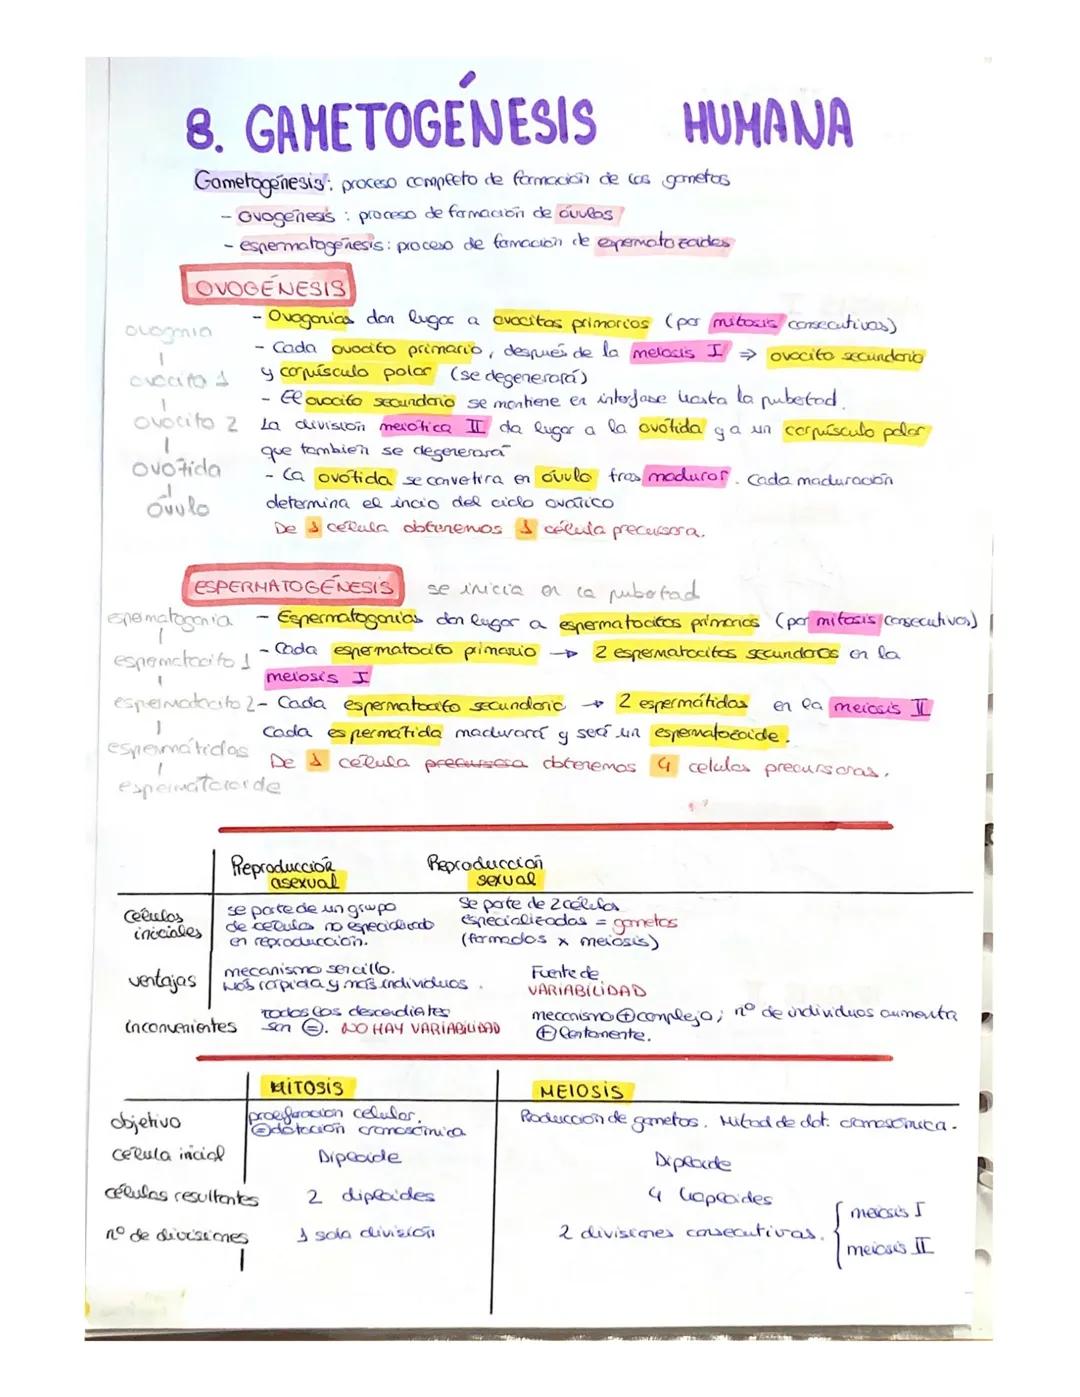 8. GAMETOGÉNESIS HUMANA
Gametogénesis: proceso completo de formación de los gametos
- Ovogénesis: proceso de formación de óvulos
- espermatogénesis: proceso de formación de espermatozoides
OVOGÉNESIS
- Ovogonias dan lugar a ovocitos primarios (por mitosis consecutivas)
- Cada ovocito primario, después de la meiosis I ⇒ ovocito secundario
y corpúsculo polar (se degenerará)
- El ovocito secundario se mantiene en interfase hasta la pubertad.
La división meiótica II da lugar a la ovótida y a un corpúsculo polar
que también se degenerará
- La ovótida se convetira en óvulo tras madurar. Cada maduración
determina el incio del ciclo ovárico
De 1 célula obtenemos 1 célula precursora.
ovogonia
|
ovocito 1
|
ovocito 2
|
ovótida
↓
óvulo
ESPERMATOGÉNESIS se inicia en la pubertad
- Espermatogonias dan lugar a espermatocitos primarios (por mitosis consecutivas)
- Cada espermatocito primario → 2 espermatocitos secundarios en la
meiosis I
- Cada espermatocito secundario → 2 espermátidas en la meiosis II
Cada espermátida madurará y será un espermatozoide.
De 1 célula precursora obtenemos 4 celulas precursoras.
espermatogonia
|
espermatocito 1
|
espermatocito 2
|
espermátidas
|
espermatozoide
Reproducción asexual Reproducción sexual
células iniciales
se parte de un grupo
de células no especializado
en reproducción.
Se parte de 2 células
especializadas = gametos
(formados x meiosis)
ventajas
mecanismo sencillo.
Más rápida y más individuos.
Fuente de
VARIABILIDAD
inconvenientes
todos los descendientes
son ⊜. NO HAY VARIABILIDAD
mecanismo ⊕ complejo; nº de individuos aumenta
⊕ lentamente.
MITOSIS MEIOSIS
objetivo
proliferación celular.
⊜ dotación cromosómica
Producción de gametos. Mitad de dot. cromosómica.
célula inicial Diploide Diploide
células resultantes 2 diploides 4 haploides
nº de divisiones 1 sola división 2 divisiones consecutivas. { meiosis I
meiosis II